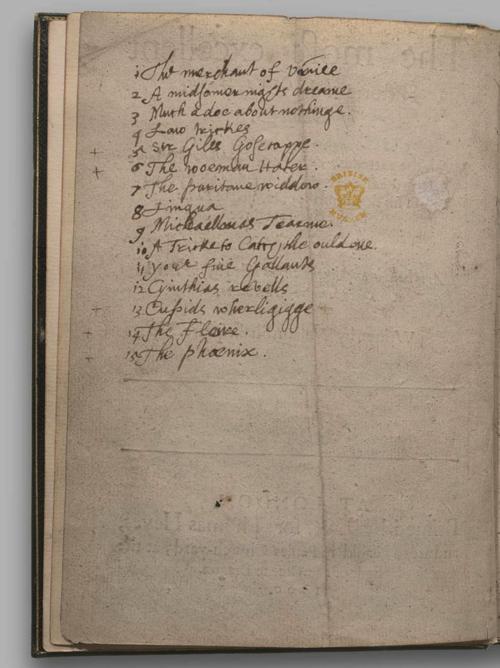 1 The merchant of venice
2 A midsomer nights dreame
3 Much adoe about nothinge.
4 Law trickes
5 Sir Giles Gosecappe.
6 The woeman Hater.
7 The puritane widdow.
8 Lingua
9 Michaellmas Tearme.
10 A Tricke to Catch the ould one.
11 your five Gallants
12 Cynthias revells
13 Cupids wherligigge
14 The Fleire.
15 The phœnix.
BRITISH
MUSEUM